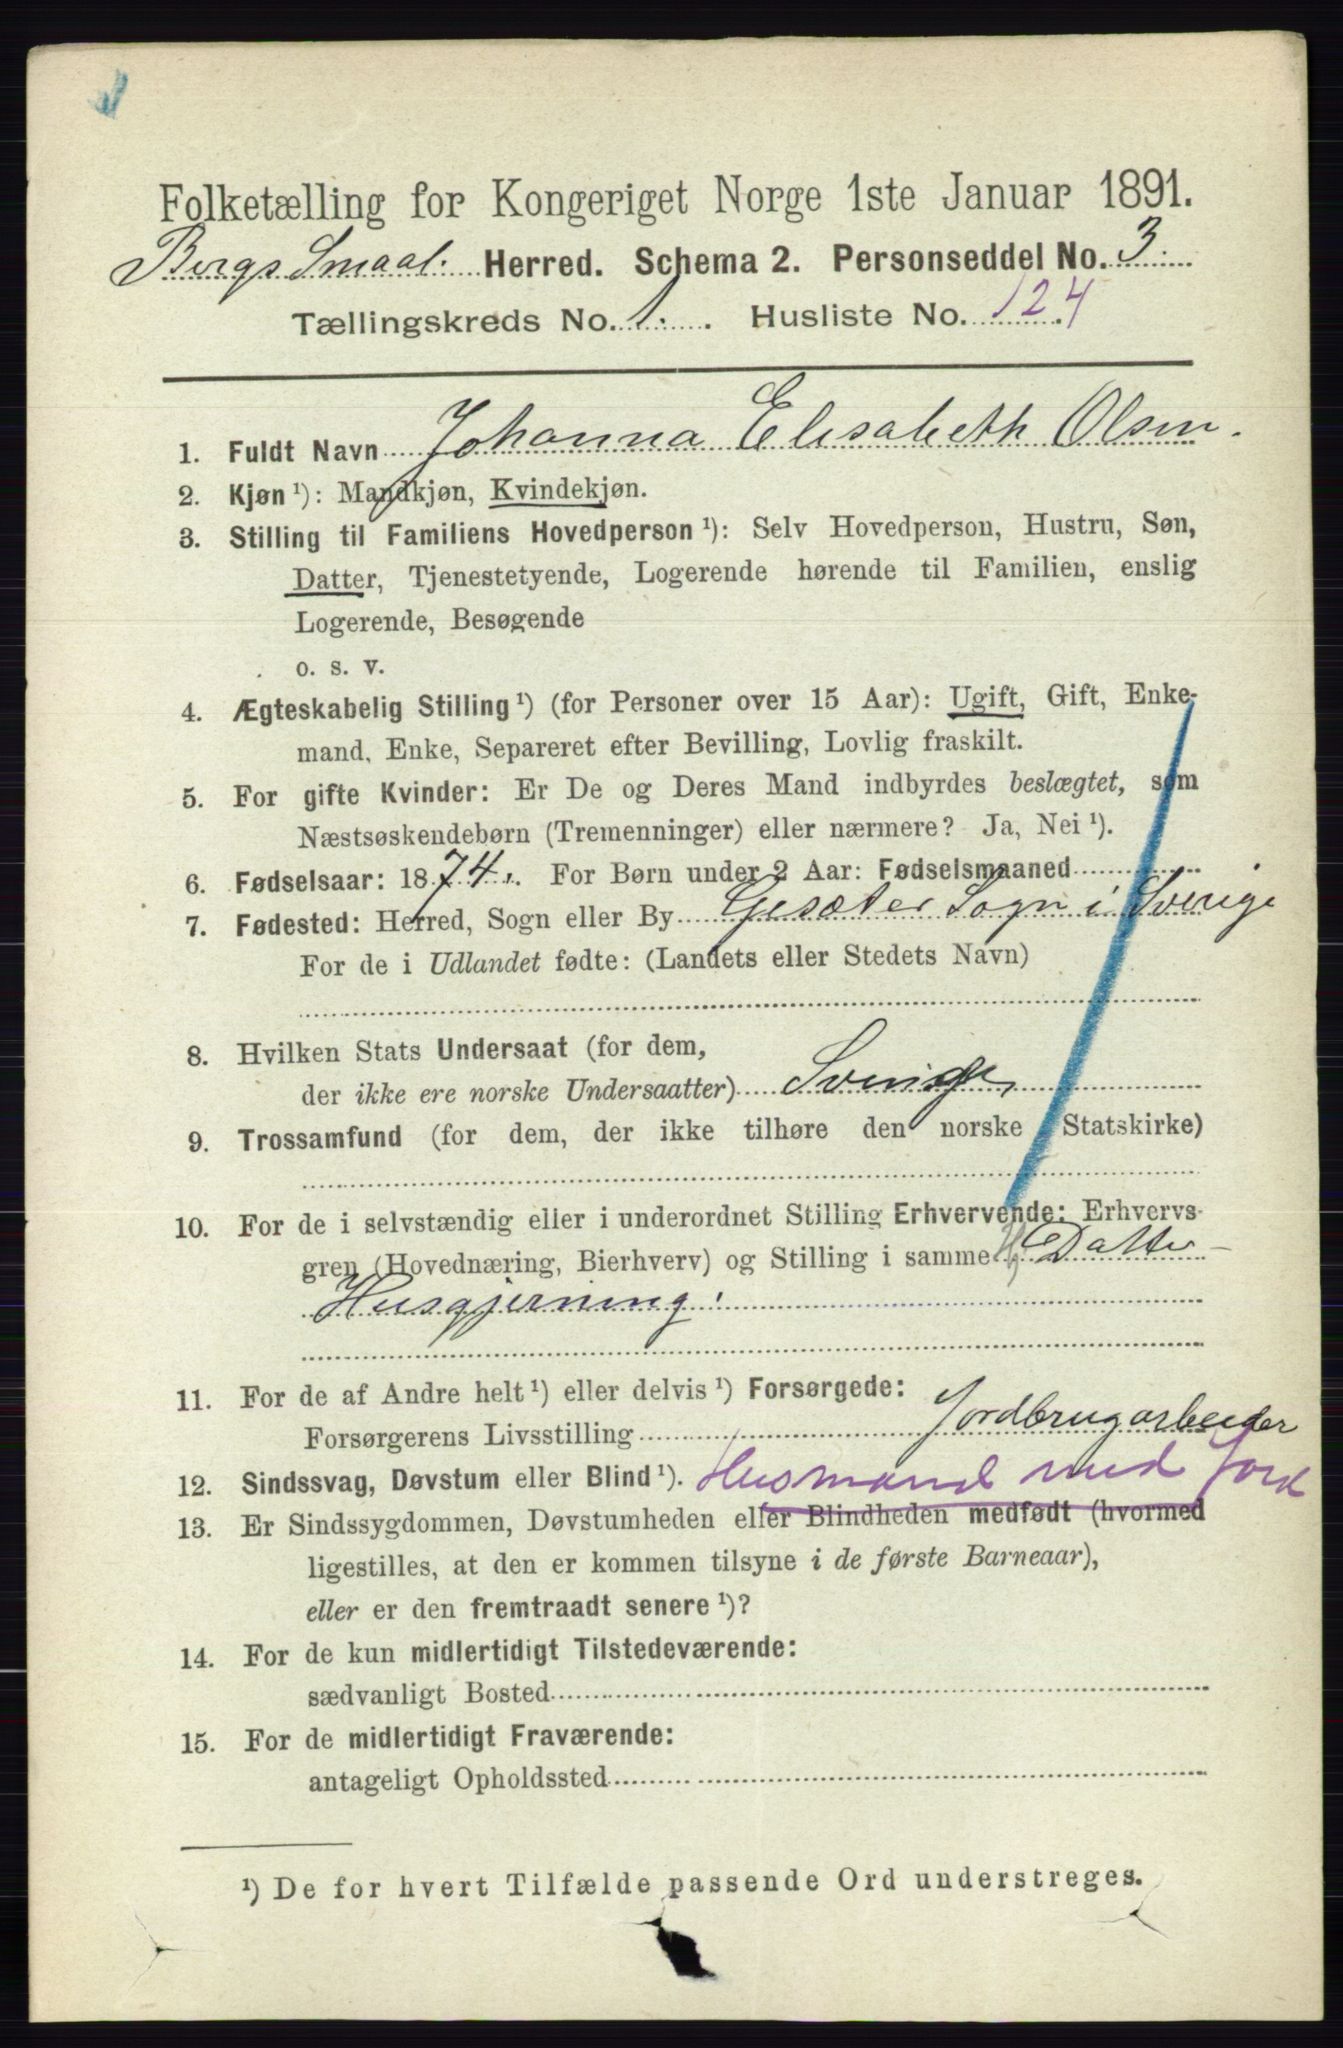 Folketælling for Kongeriget Norge 1ste Januar 1891.
Bergs Smaal. Herred. Schema 2. Personseddel No. 3.
Tællingskreds No. 1. Husliste No. 124
1. Fuldt Navn Johanna Elisabeth Olsen.
2. Kjøn ¹): Mandkjøn, Kvindekjøn.
3. Stilling til Familiens Hovedperson ¹): Selv Hovedperson, Hustru, Søn,
Datter, Tjenestetyende, Logerende hørende til Familien, enslig
Logerende, Besøgende
o. s. v.
4. Ægteskabelig Stilling ¹) (for Personer over 15 Aar): Ugift, Gift, Enke-
mand, Enke, Separeret efter Bevilling, Lovlig fraskilt.
5. For gifte Kvinder: Er De og Deres Mand indbyrdes beslægtet, som
Næstsøskendebørn (Tremenninger) eller nærmere? Ja, Nei ¹).
6. Fødselsaar: 1874. For Børn under 2 Aar: Fødselsmaaned
7. Fødested: Herred, Sogn eller By Gesæter Sogn i Sverige
For de i Udlandet fødte: (Landets eller Stedets Navn)
8. Hvilken Stats Undersaat (for dem,
der ikke ere norske Undersaatter) Sverige,
9. Trossamfund (for dem, der ikke tilhøre den norske Statskirke)
10. For de i selvstændig eller i underordnet Stilling Erhvervende: Erhvervs-
gren (Hovednæring, Bierhverv) og Stilling i samme Datter
Husgjerning.
11. For de af Andre helt ¹) eller delvis ¹) Forsørgede:
Forsørgerens Livsstilling Jordbrugarbeider
12. Sindssvag, Døvstum eller Blind ¹). Husmand med Jord
13. Er Sindssygdommen, Døvstumheden eller Blindheden medfødt (hvormed
ligestilles, at den er kommen tilsyne i de første Barneaar),
eller er den fremtraadt senere ¹)?
14. For de kun midlertidigt Tilstedeværende:
sædvanligt Bosted
15. For de midlertidigt Fraværende:
antageligt Opholdssted
¹) De for hvert Tilfælde passende Ord understreges.